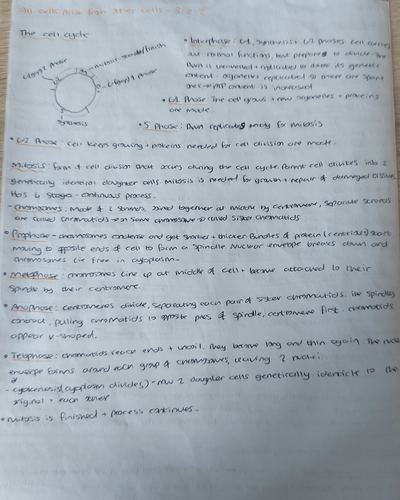 All cells arise from other cells - 3.2.2
The cell cycle
• Interphase: G1, synthesis + G2 phases. Cell carries
out normal functions, but prepares to divide. The
DNA is unravelled + replicated to double its genetic
content. organelles replicated so there are spare
ones. ATP content is increased
Gap 1 Phase
mitosis starts/finish
Gap 2 Phase
Synthesis
• G1 Phase The cell grows + new organelles + proteins
are made.
• S Phase: DNA replicates ready for mitosis
• G2 Phase: cell keeps growing + proteins needed for cell division are made.
Mitosis: form of cell division that occurs during the cell cycle. Parent cell divides into 2
genetically identical daughter cells. Mitosis is needed for growth + repair of damaged tissue
Has 4 stages - continuous process.
- Chromosomes: made of 2 strands joined together at middle by centromere, separate strands
are called chromatids - on same chromosome so called sister chromatids
• Prophase - chromosomes condense and get shorter + thicker. Bundles of protein (centrioles) start
moving to opposite ends of cell to form a spindle. Nuclear envelope breaks down and
chromosomes lie free in cytoplasm -
• Metaphase: chromosomes line up at middle of cell + become attached to their
spindle by their centromere.
• Anaphase: centromeres divide, separating each pair of sister chromatids. The spindles
contract, pulling chromatids to opposite poles of spindle, centromere first. chromatids
appear v-shaped.
• Telophase: chromatids reach ends + uncoil. They become long and thin again. The nuclear
envelope forms around each group of chromosomes, leaving 2 nuclei
- cytokinesis (cytoplasm divides) - now 2 daughter cells genetically identicle to the
original + each other
• Mitosis is finished + process continues -